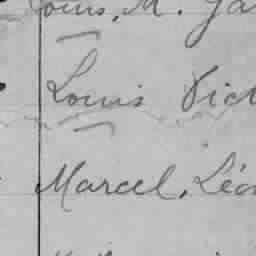 Louis, M. Ja
Louis Vict
Marcel, Léo